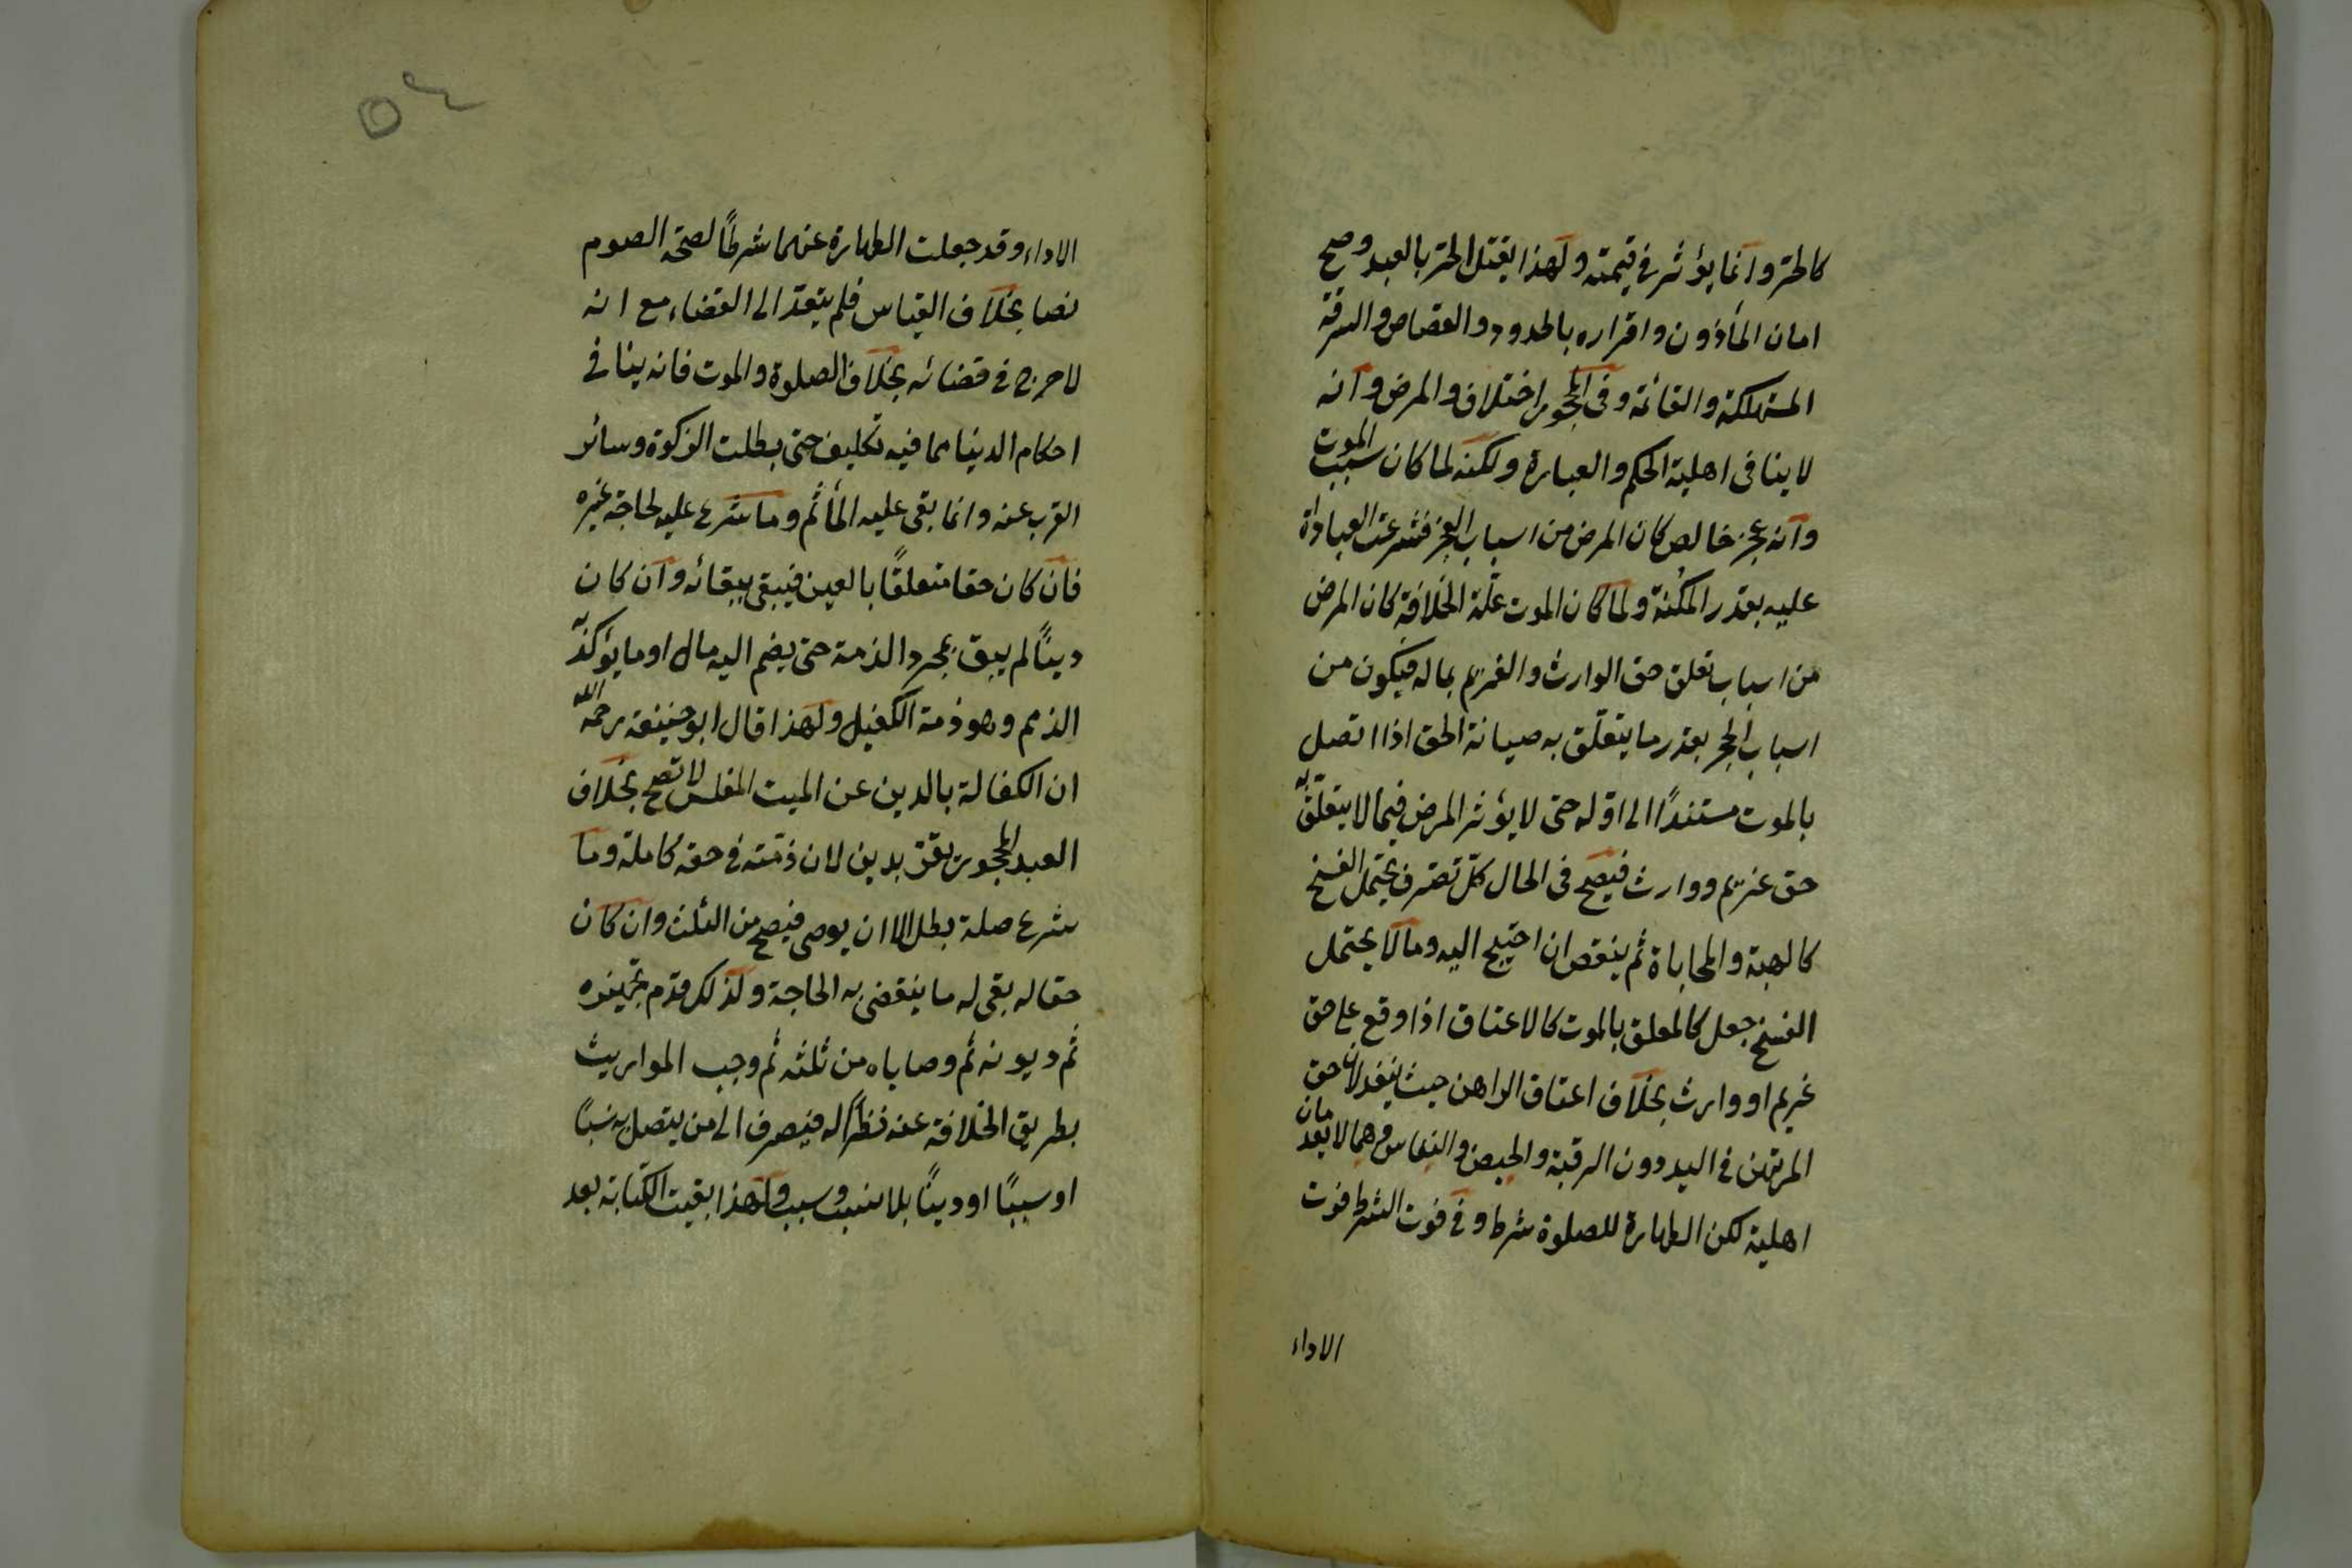 كالحرّ وانّما يؤثر فى قيمته ولهذا يقتل الحرّ بالعبد وصح
امان المأذون واقراره بالحدود والقصاص والسرقة
المستهلكة والقائمة وفى المحجور اختلاف والمرض وانه
لا ينافى اهلية الحكم والعبارة ولكنه لما كان سبب الموت
وانه عجز خالص كان المرض من اسباب العجز فشرعت العبادات
عليه بقدر المكنة ولما كان الموت علّة الخلافة كان المرض
من اسباب تعلق حق الوارث والغريم بماله فيكون من
اسباب الحجر بقدر ما يتعلّق به صيانة الحق اذا اتصل
بالموت مستندًا الى اوّله حتى لا يؤثر المرض فيما لا يتعلّق به
حق غريم ووارث فيصح فى الحال كلّ تصرف يحتمل الفسخ
كالهبة والمحاباة ثم ينقص ان احتيج اليه وما لا يحتمل
الفسخ جعل كالمعلق بالموت كالاعتاق اذا وقع على حق
غريم او وارث بخلاف اعتاق الراهن حيث ينفذ لان حق
المرتهن فى اليد دون الرقبة والحيض والنفاس وهما لا يعدمان
اهلية لكن الطهارة للصلوة شرط وفى فوت الشرط فوت
الاداء
٥٤
الاداء وقد جعلت الطهارة عنهما شرطًا لصحّة الصوم
نصا بخلاف القياس فلم يتعدّ الى القضاء مع انه
لا حرج فى قضائه بخلاف الصلوة والموت فانه ينافى
احكام الدينا مما فيه تكليف حتى بطلت الزكوة وسائر
القرب عنه وانما بقى عليه المأثم وما شرع عليه لحاجة غيره
فان كان حقا متعلقًا بالعين فيبقى ببقائه وان كان
دينًا لم يبق بمجرد الذمة حتى يضم اليه مال او ما يؤكد به
الذمم وهو ذمة الكفيل ولهذا قال ابو حنيفة رحمه الله
ان الكفالة بالدين عن الميت المفلس لا تصح بخلاف
العبد المحجور يقرّ بدين لان ذمّته فى حقه كاملة وما
شرع صلة بطل الا ان يوصى فيصح من الثلث وان كان
حقا له بقى له ما ينقضى به الحاجة ولذلك قدّم تجهيزه
ثم ديونه ثم وصاياه من ثلثه ثم وجب المواريث
بطريق الخلافة عنه نظرًا له فيصرف الى من يتصل به نسبًا
او سببًا او دينًا بلا نسب وسبب ولهذا بقيت الكتابة بعد